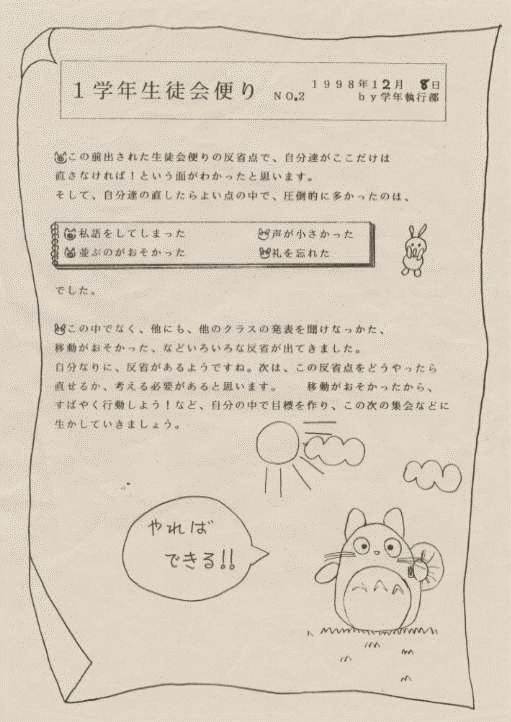 1学年生徒会便り NO.2
1998年12月 8日
by学年執行部
この前出された生徒会便りの反省点で、自分達がここだけは
直さなければ！という面がわかったと思います。
そして、自分達の直したらよい点の中で、圧倒的に多かったのは、
私語をしてしまった 声が小さかった
並ぶのがおそかった 礼を忘れた
でした。
この中でなく、他にも、他のクラスの発表を聞けなっかた、
移動がおそかった、などいろいろな反省が出てきました。
自分なりに、反省があるようですね。次は、この反省点をどうやったら
直せるか、考える必要があると思います。 移動がおそかったから、
すばやく行動しよう！など、自分の中で目標を作り、この次の集会などに
生かしていきましょう。
やれば
できる!!